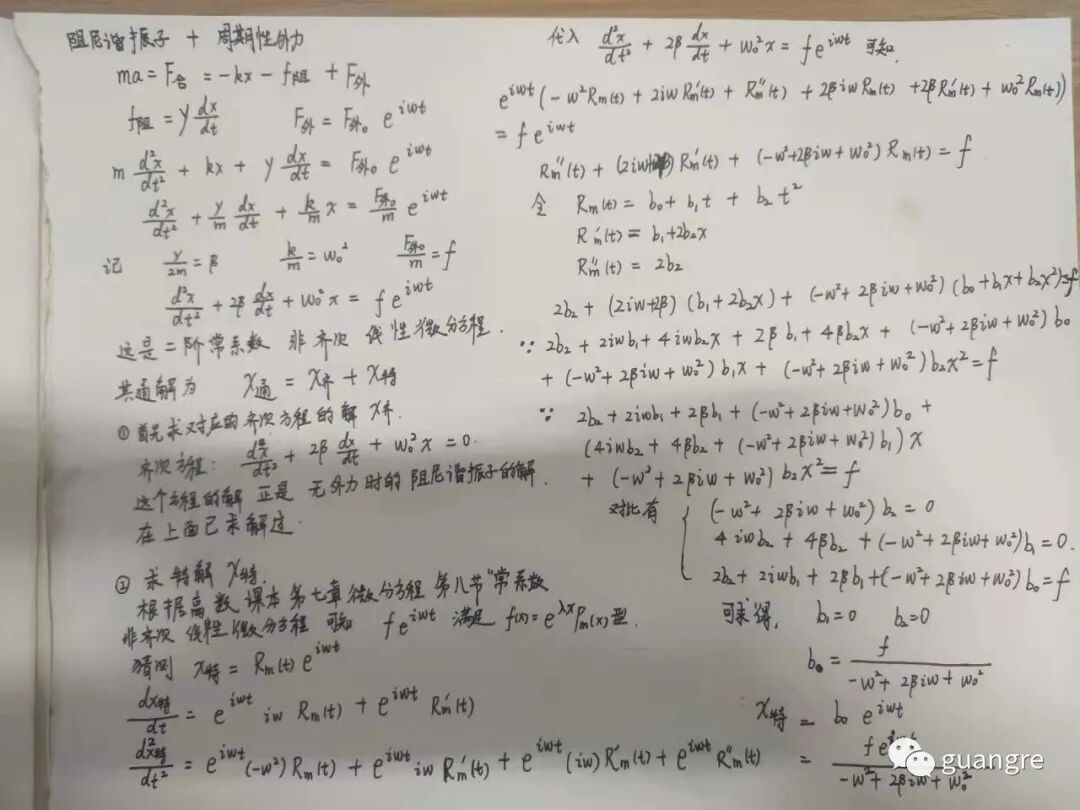 阻尼谐振子 + 周期性外力
ma = F合 = -kx - f阻 + F外
f阻 = γ dx/dt    F外 = F外₀ e^{iωt}
m d²x/dt² + kx + γ dx/dt = F外₀ e^{iωt}
d²x/dt² + γ/m dx/dt + k/m x = F外₀/m e^{iωt}
记 γ/2m = β    k/m = ω₀²    F外₀/m = f
d²x/dt² + 2β dx/dt + ω₀² x = f e^{iωt}
这是二阶常系数 非齐次 线性微分方程.
其通解为 x通 = x齐 + x特
① 首先求对应的齐次方程的解 x齐.
齐次方程: d²x/dt² + 2β dx/dt + ω₀² x = 0.
这个方程的解 正是 无外力时的阻尼谐振子的解.
在上面已求解过.
② 求特解 x特.
根据高数课本第七章微分方程 第八节"常系数
非齐次 线性微分方程 可知 f e^{iωt} 满足 f(x) = e^{λx} Pm(x) 型.
猜测 x特 = Rm(t) e^{iωt}
dx特/dt = e^{iωt} iω Rm(t) + e^{iωt} Rm'(t)
d²x特/dt² = e^{iωt} (-ω²) Rm(t) + e^{iωt} iω Rm'(t) + e^{iωt} (iω) Rm'(t) + e^{iωt} Rm''(t)
代入 d²x/dt² + 2β dx/dt + ω₀² x = f e^{iωt} 可知
e^{iωt} (-ω² Rm(t) + 2iω Rm'(t) + Rm''(t) + 2βiω Rm(t) + 2β Rm'(t) + ω₀² Rm(t))
= f e^{iωt}
Rm''(t) + (2iω+2β) Rm'(t) + (-ω²+2βiω+ω₀²) Rm(t) = f
令 Rm(t) = b₀ + b₁t + b₂t²
Rm'(t) = b₁+2b₂x
Rm''(t) = 2b₂
2b₂ + (2iω+2β) (b₁+2b₂x) + (-ω²+2βiω+ω₀²) (b₀+b₁x+b₂x²) = f
∵ 2b₂ + 2iωb₁ + 4iωb₂x + 2βb₁ + 4βb₂x + (-ω²+2βiω+ω₀²) b₀
+ (-ω²+2βiω+ω₀²) b₁x + (-ω²+2βiω+ω₀²) b₂x² = f
∵ 2b₂ + 2iωb₁ + 2βb₁ + (-ω²+2βiω+ω₀²) b₀ +
(4iωb₂ + 4βb₂ + (-ω²+2βiω+ω₀²) b₁) x
+ (-ω²+2βiω+ω₀²) b₂x² = f
对比有 { (-ω²+2βiω+ω₀²) b₂ = 0
4iωb₂ + 4βb₂ + (-ω²+2βiω+ω₀²) b₁ = 0.
2b₂ + 2iωb₁ + 2βb₁ + (-ω²+2βiω+ω₀²) b₀ = f
可求得, b₁=0    b₂=0
b₀ = f/(-ω²+2βiω+ω₀²)
x特 = b₀ e^{iωt}
= f e^{iωt}/(-ω²+2βiω+ω₀²)
guangre